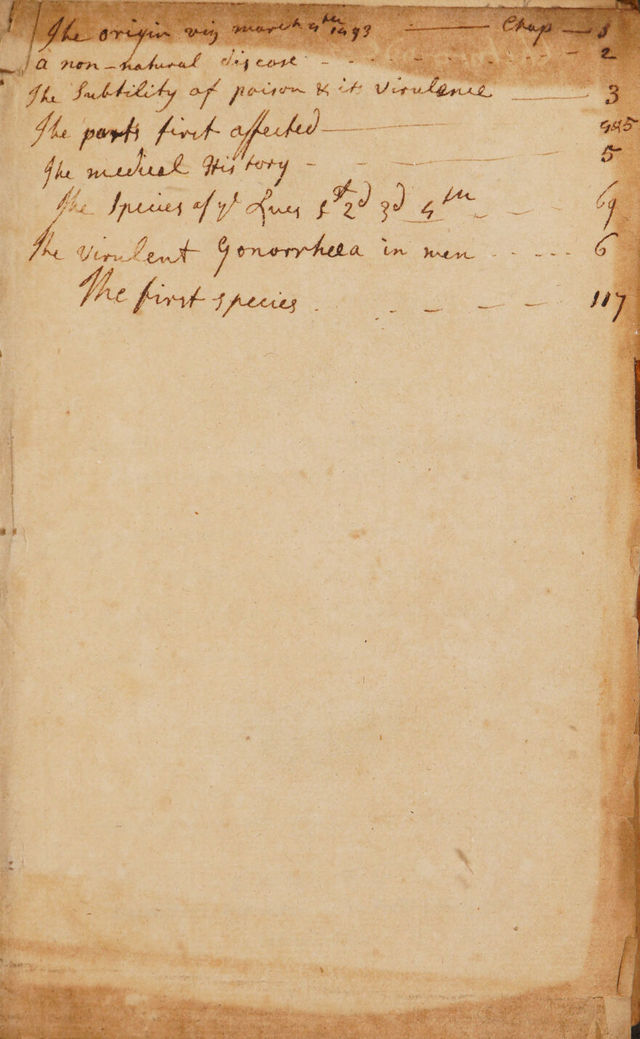 The origin viz march 4th 1493 — Chap — 1
a non-natural disease - - - - - - 2
The Subtility of poison & its Virulence — 3
The parts first affected — 4&5
The medical History - — 5
The Species of ye Lues 1st 2d 3d 4th - - - 69
The virulent Gonorrheea in men - - - - - 6
The first species . . - - - - 117